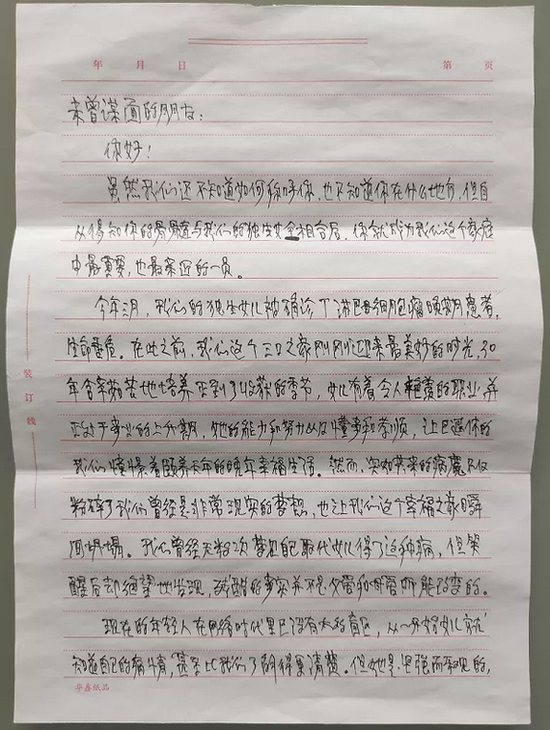 年 月 日 第 页
未曾谋面的朋友：
你好！
虽然我们还不知道如何称呼你，也不知道你在什么地方，但自
从得知你的骨髓与我们的独生女全相合后，你就成为我们这个家庭
中最重要，也最亲近的一员。
今年三月，我们的独生女儿被确诊了淋巴母细胞瘤晚期患者，
生命垂危。在此之前，我们这个三口之家刚刚迎来最美好的时光，30
年含辛茹苦地培养正到了收获的季节，女儿有着令人羡慕的职业并
正处于事业的上升期，她的能力和努力以及懂事和孝顺，让已退休的
我们憧憬着颐养天年的晚年幸福生活。然而，突如其来的病魔不仅
粉碎了我们曾经是非常现实的梦想，也让我们这个幸福之家瞬
间坍塌。我们曾经无数次梦见自己取代女儿得了这种病，但笑
醒后却绝望地发现，残酷的事实并不是父爱和母爱所能改变的。
现在的年轻人在网络时代里已没有太多盲区，从一开始女儿就
知道自己的病情，甚至比我们了解得更清楚。但她是坚强而乐观的，
装订线
华鑫纸品